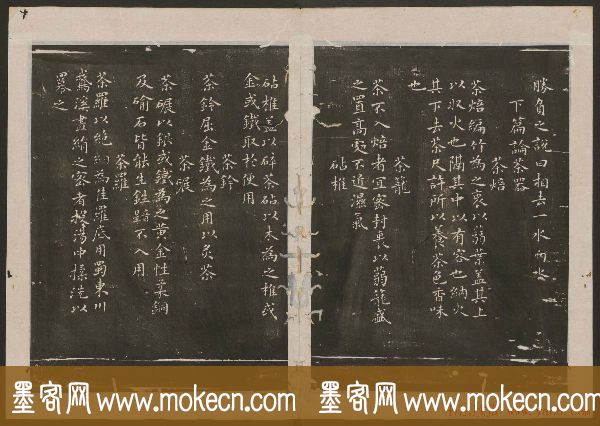 勝負之說曰相去一水兩水
下篇論茶器
茶焙
茶焙編竹為之裹以蒻葉蓋其上
以収火也隔其中以有容也納火
其下去茶尺許所以養茶色香味
也
茶籠
茶不入焙者宜密封裹以蒻籠盛
之置高處不近濕氣
砧椎
砧椎蓋以碎茶砧以木為之椎或
金或鐵取於便用
茶鈐
茶鈐屈金鐵為之用以炙茶
茶碾
茶碾以銀或鐵為之黃金性柔銅
及鍮石皆能生鉎不入用
茶羅
茶羅以絶細為佳羅底用蜀東川
鵞溪畫絹之密者投湯中揉洗以
羃之
墨客网 www.mokecn.com 墨客网 www.mokecn.com